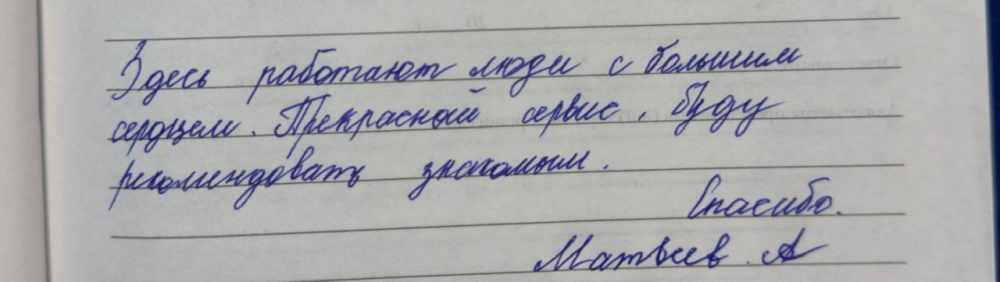 Здесь работают люди с большим
сердцем. Прекрасный сервис, буду
рекомендовать знакомым.
Спасибо.
Матвеев. А